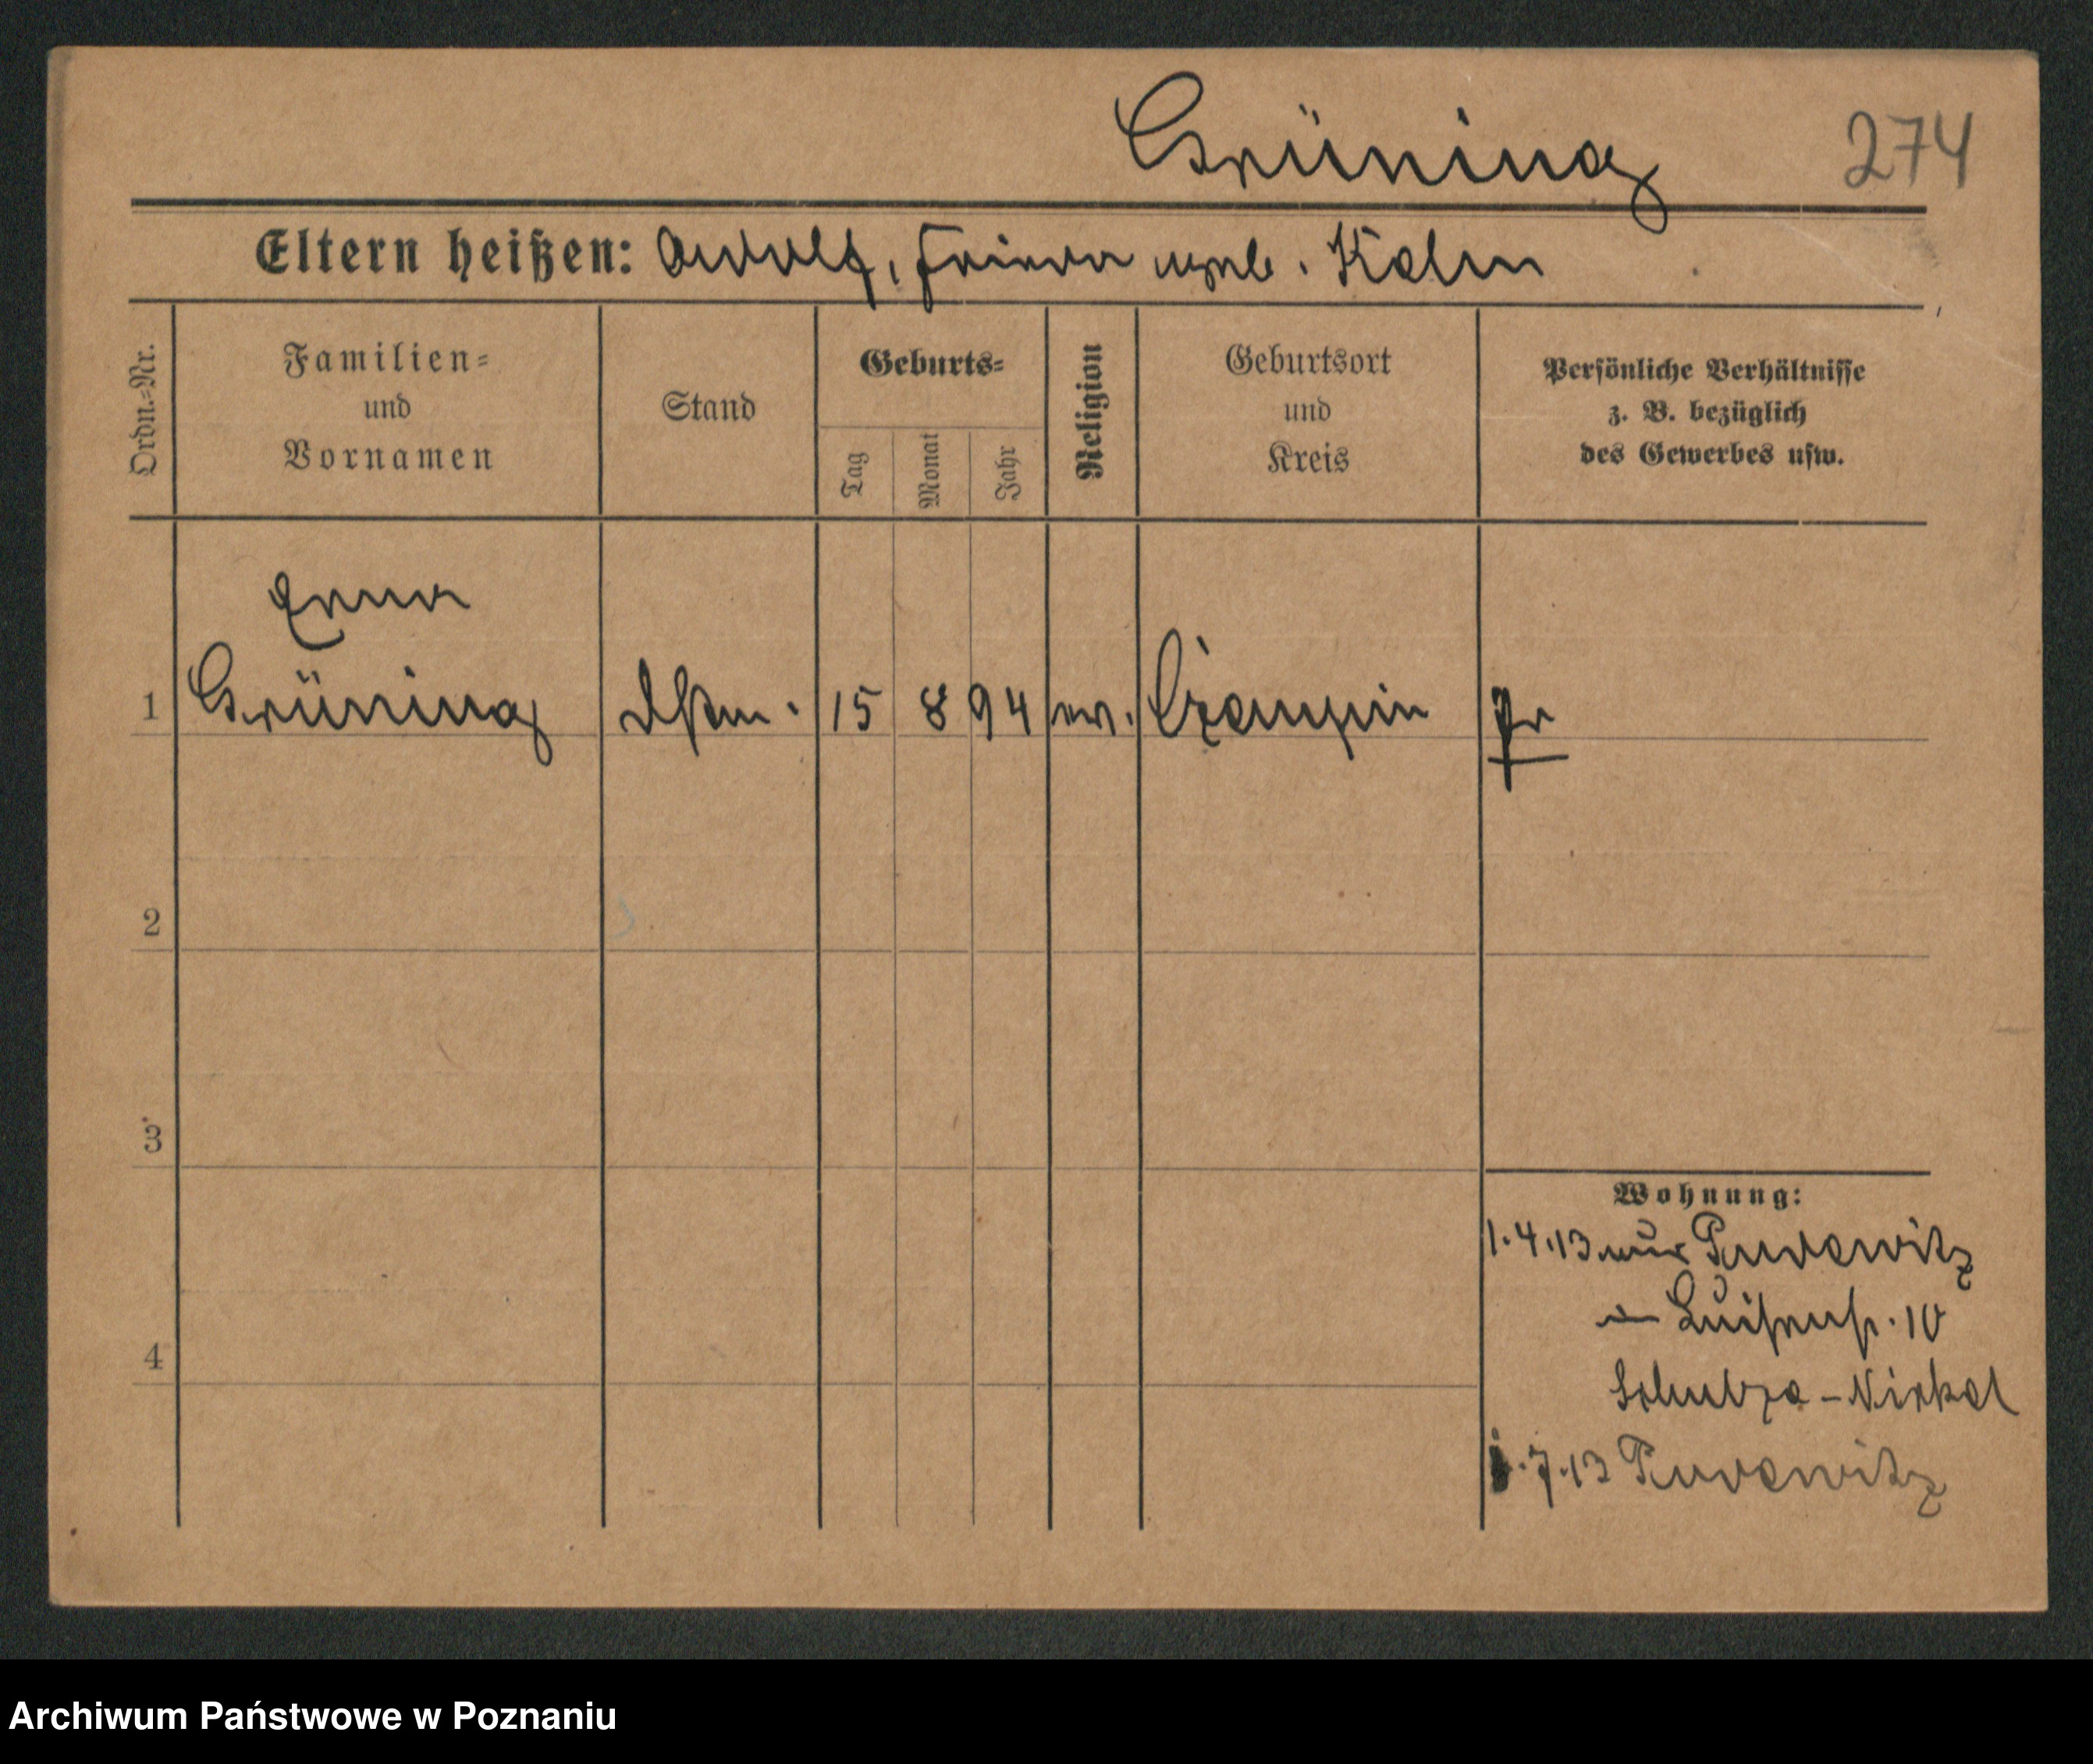 Grüning 274
Eltern heißen: Adolf, Frieda geb. Kalm
Ordn.-Nr.
Familien-
und
Vornamen
Stand
Geburts-
Tag
Monat
Jahr
Religion
Geburtsort
und
Kreis
Persönliche Verhältnisse
z. B. bezüglich
des Gewerbes usw.
Erna
1 Grüning 15 8 94 ev. Czempin Pr
2
3
Wohnung:
1.4.13 aus Pudewitz
Luisenstr. 10
4
Schulze-Nickel
.7.13 Pudewitz
Archiwum Państwowe w Poznaniu